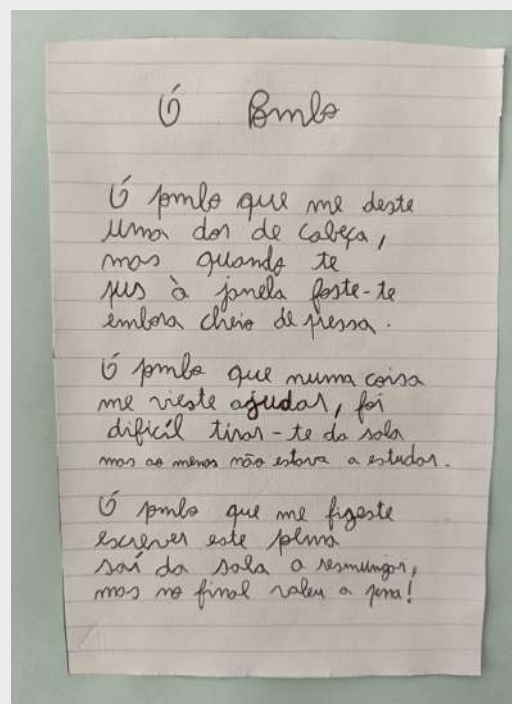 Ó Pombo
Ó pombo que me deste
uma dor de cabeça,
mas quando te
pus à janela foste-te
embora cheio de pressa.
Ó pombo que numa coisa
me vieste ajudar, foi
dificíl tirar-te da sala
mas ao menos não estava a estudar.
Ó pombo que me fizeste
escrever este pema
saí da sala a resmungar,
mas no final valeu a pena!